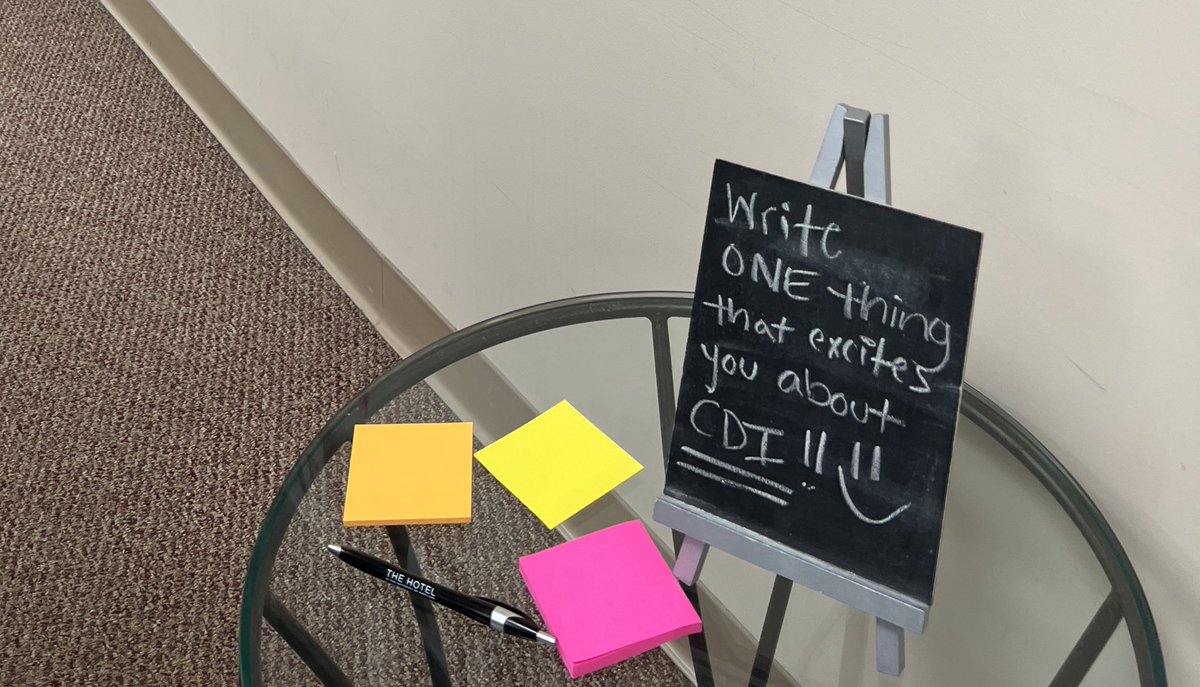 Write
ONE thing
that excites
you about
CDI !! !!
THE HOTEL